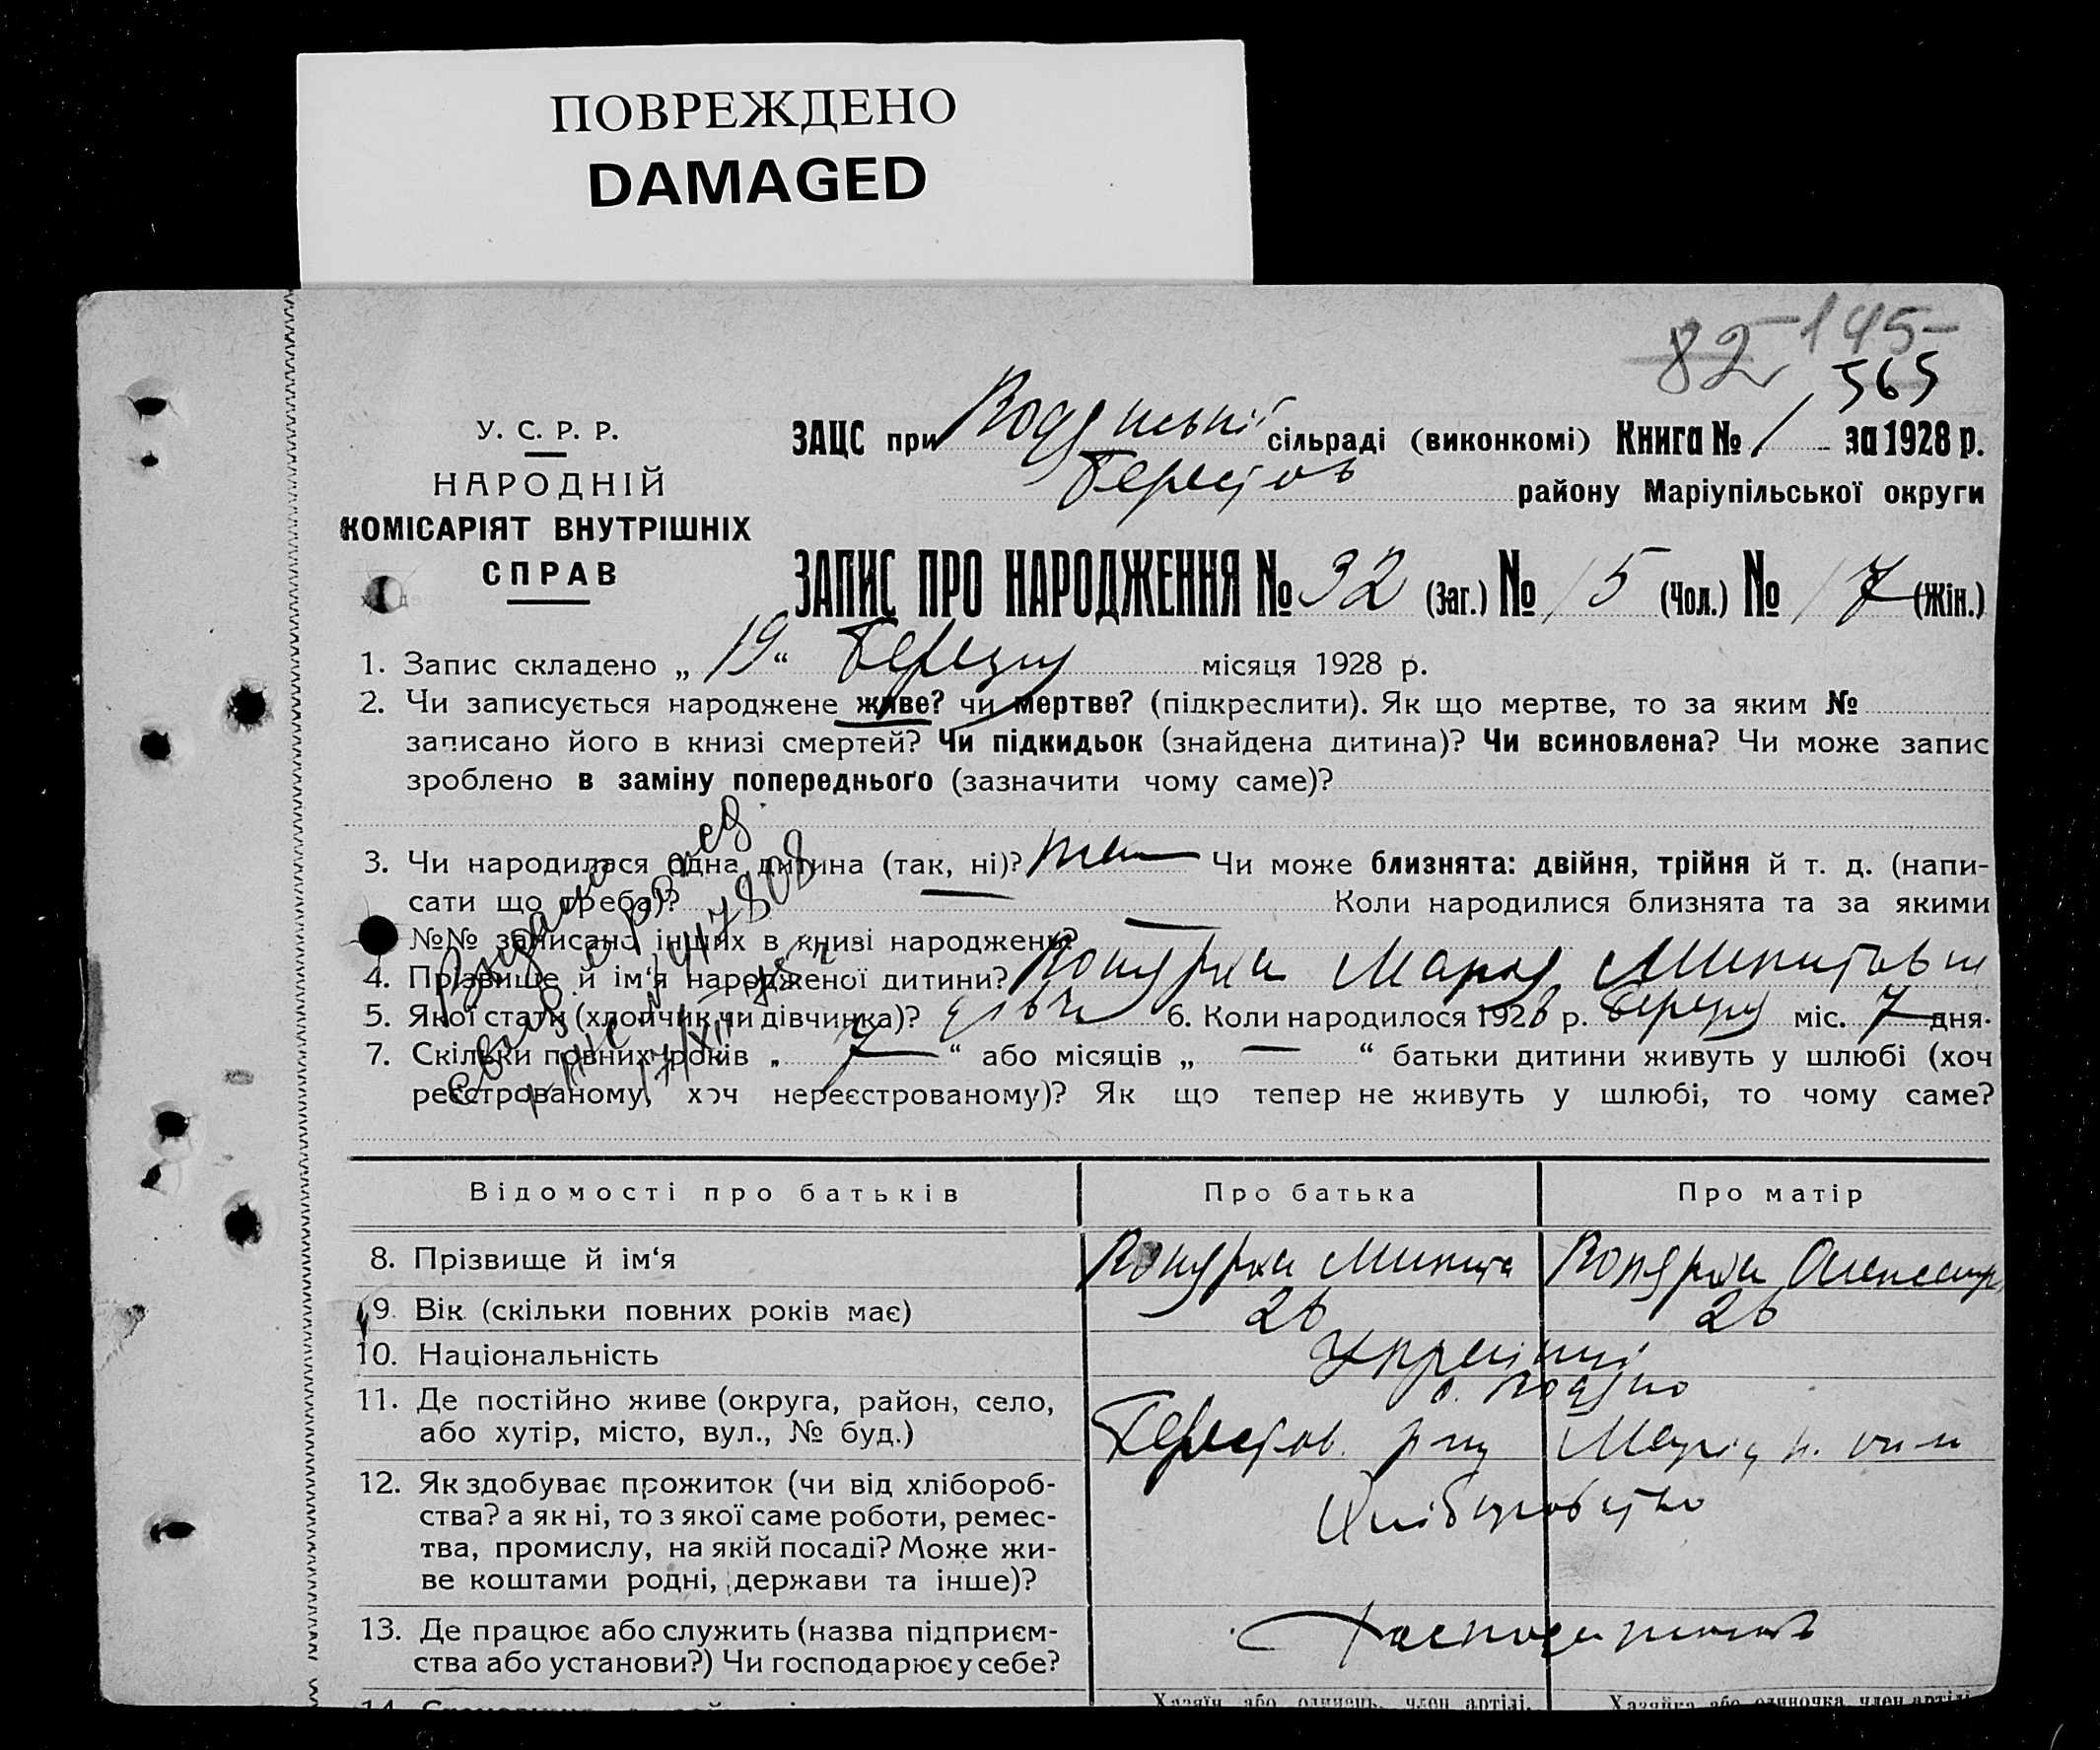 ПОВРЕЖДЕНО
DAMAGED
82 - 145 -
565
У. С. Р. Р.
НАРОДНІЙ
КОМІСАРІЯТ ВНУТРІШНІХ
СПРАВ
ЗАЦС при сільраді (виконкомі) Книга № 1 за 1928 р.
Берестов району Маріупільської округи
ЗАПИС ПРО НАРОДЖЕННЯ № 32 (Заг.) № 15 (Чол.) № 17 (Жін.)
1. Запис складено „ 19 “ Березня місяця 1928 р.
2. Чи записується народжене живе? чи мертве? (підкреслити). Як що мертве, то за яким №
записано його в книзі смертей? Чи підкидьок (знайдена дитина)? Чи всиновлена? Чи може запис
зроблено в заміну попереднього (зазначити чому саме)?
3. Чи народилася одна дитина (так, ні)? так Чи може близнята: двійня, трійня й т. д. (напи-
сати що треба)? Коли народилися близнята та за якими
№№ записано інших в книзі народжень?
4. Прізвище й ім‘я народженої дитини?
5. Якої стати (хлопчик чи дівчинка)? дівч 6. Коли народилося 1928 р. березня міс. 7 дня.
7. Скільки повних років „ 7 “ або місяців „ — “ батьки дитини живуть у шлюбі (хоч
реєстрованому, хоч нереєстрованому)? Як що тепер не живуть у шлюбі, то чому саме?
Відомості про батьків Про батька Про матір
8. Прізвище й ім‘я
9. Вік (скільки повних років має) 26 26
10. Національність Українці
11. Де постійно живе (округа, район, село,
або хутір, місто, вул., № буд.)
Берестов.
12. Як здобуває прожиток (чи від хлібороб-
ства? а як ні, то з якої саме роботи, ремес-
тва, промислу, на якій посаді? Може жи-
ве коштами родні, держави та інше)?
Хліборобство
13. Де працює або служить (назва підприєм-
ства або установи?) Чи господарює у себе?
Хазяїн або одинець, член артілі, Хазяйка або одиночка член артілі